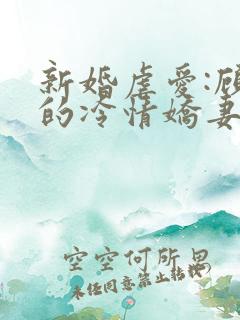 新婚虐爱:顾
的冷情娇妻
空空何所思
未经同意禁止转载